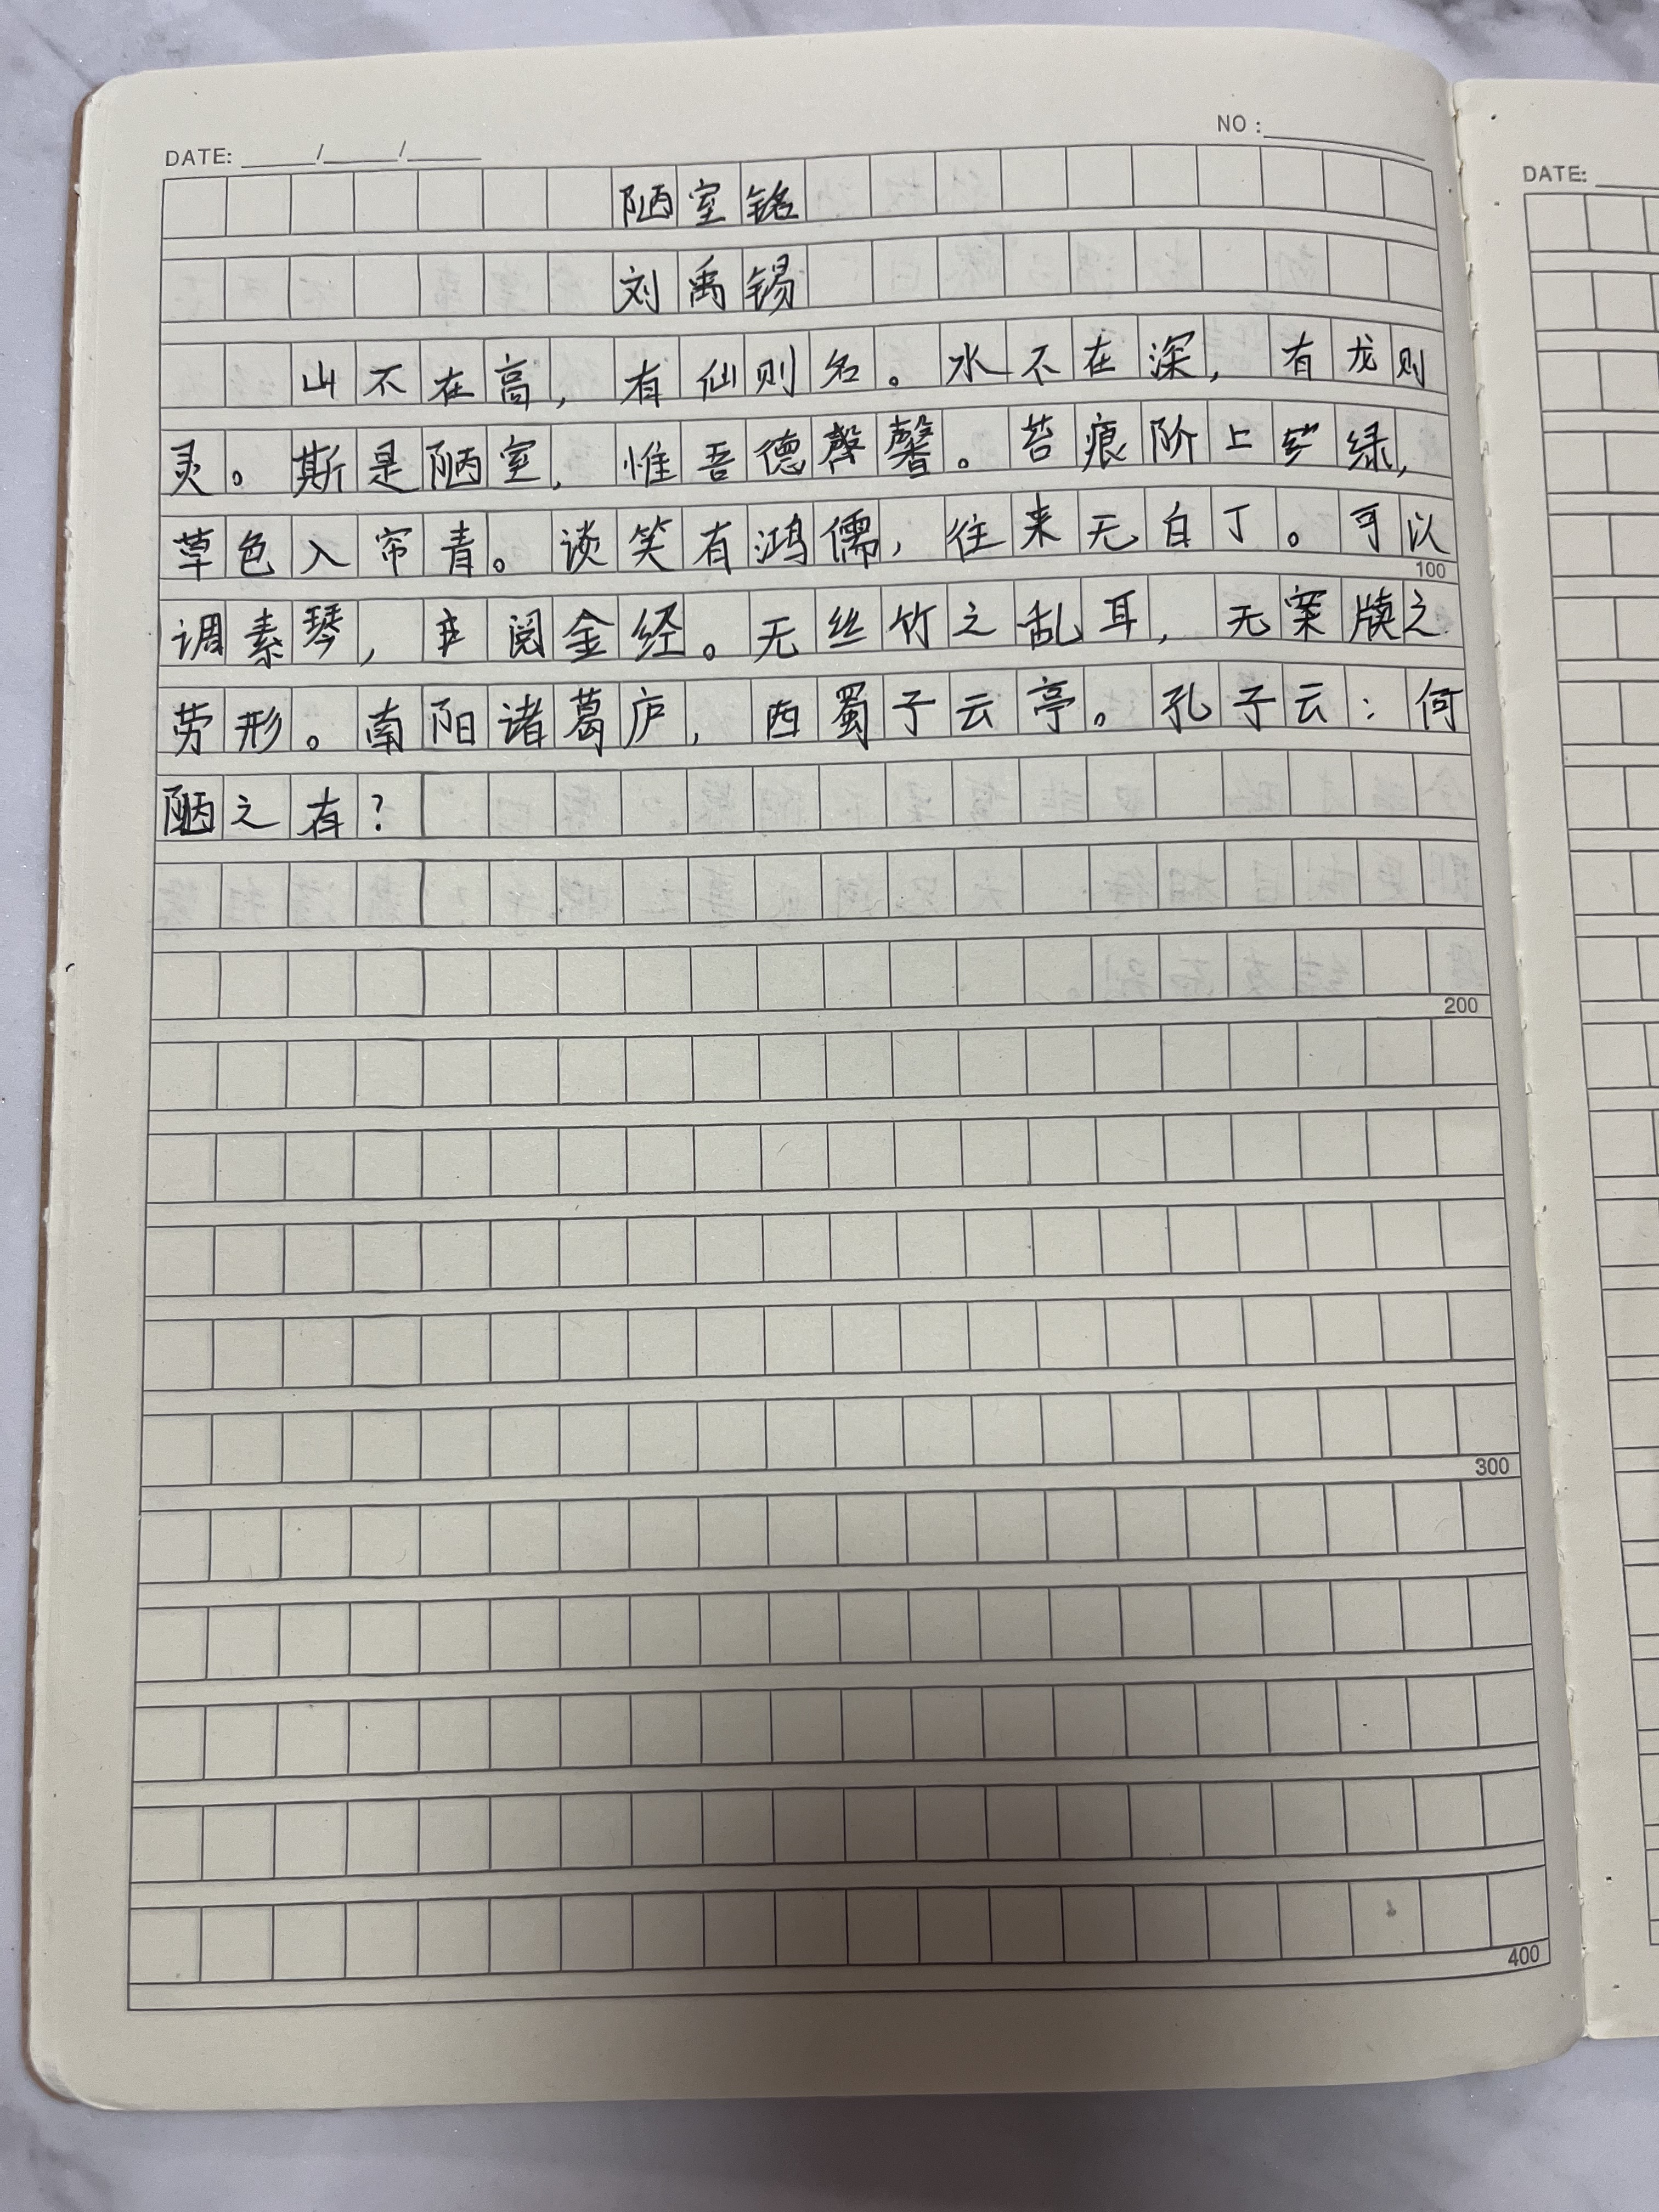 DATE: / / NO:
陋室铭
刘禹锡
山不在高,有仙则名。水不在深,有龙则
灵。斯是陋室,惟吾德馨。苔痕阶上绿,
草色入帘青。谈笑有鸿儒,往来无白丁。可以
100
调素琴,阅金经。无丝竹之乱耳,无案牍之
劳形。南阳诸葛庐,西蜀子云亭。孔子云:何
陋之有?
200
300
400
DATE: